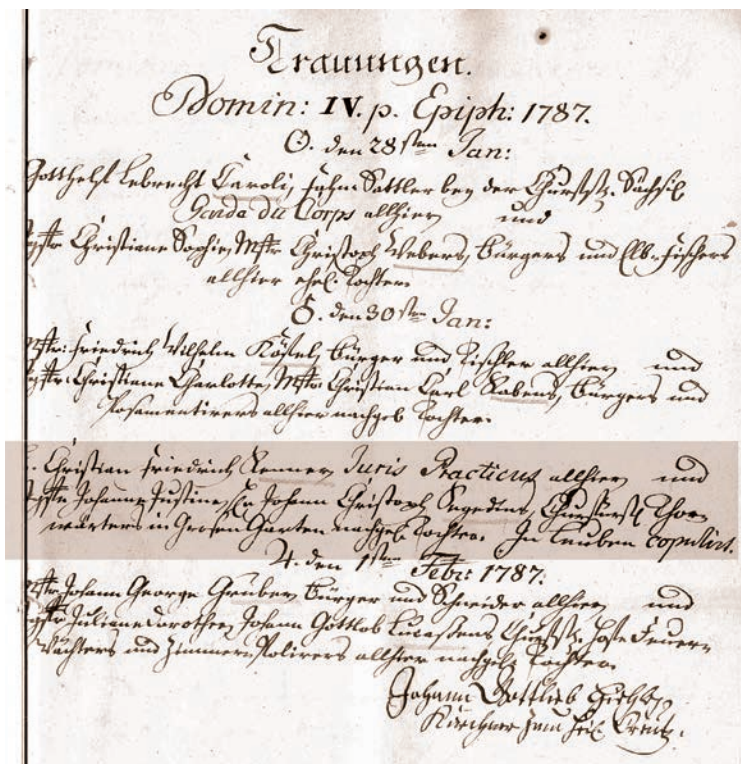 Trauungen.
Domin: IV. p. Epiph: 1787.
☉. den 28sten Jan:
Gotthelf Lebrecht Caroli, Fahn Sattler bey der Churfstl. Sächsil
Garde du Corps allhier, und
Jgfr Christiane Sophie, Mstr Christoph Webers, Bürgers und Elb-Fischers
allhier ehel. Tochter.
♂. den 30sten Jan:
Mstr: Friedrich Wilhelm Köstel, Bürger und Tischler allhier, und
Jgfr: Christiane Charlotte, Mstr Christian Carl Rabens, Bürgers und
Posamentirers allhier nachgel Tochter.
Christian Friedrich Renner, Juris Practicus allhier, und
Jgfr Johanne Justine, Hn Johann Christoph Churfürstl Thor-
wärters in Grosen Garten nachgel. Tochter. In Leuben copulirt.
♃. den 1sten Febr: 1787.
Mstr Johann George Gruber, Bürger und Schneider allhier, und
Jgfr Juliane Dorothee, Johann Gottlob Churfstl. Hofe Feuer-
Wächters und Zimmer-Polirers allhier nachgel. Tochter.
Johann Gottlieb
Kirchner zum heil. Creutz.